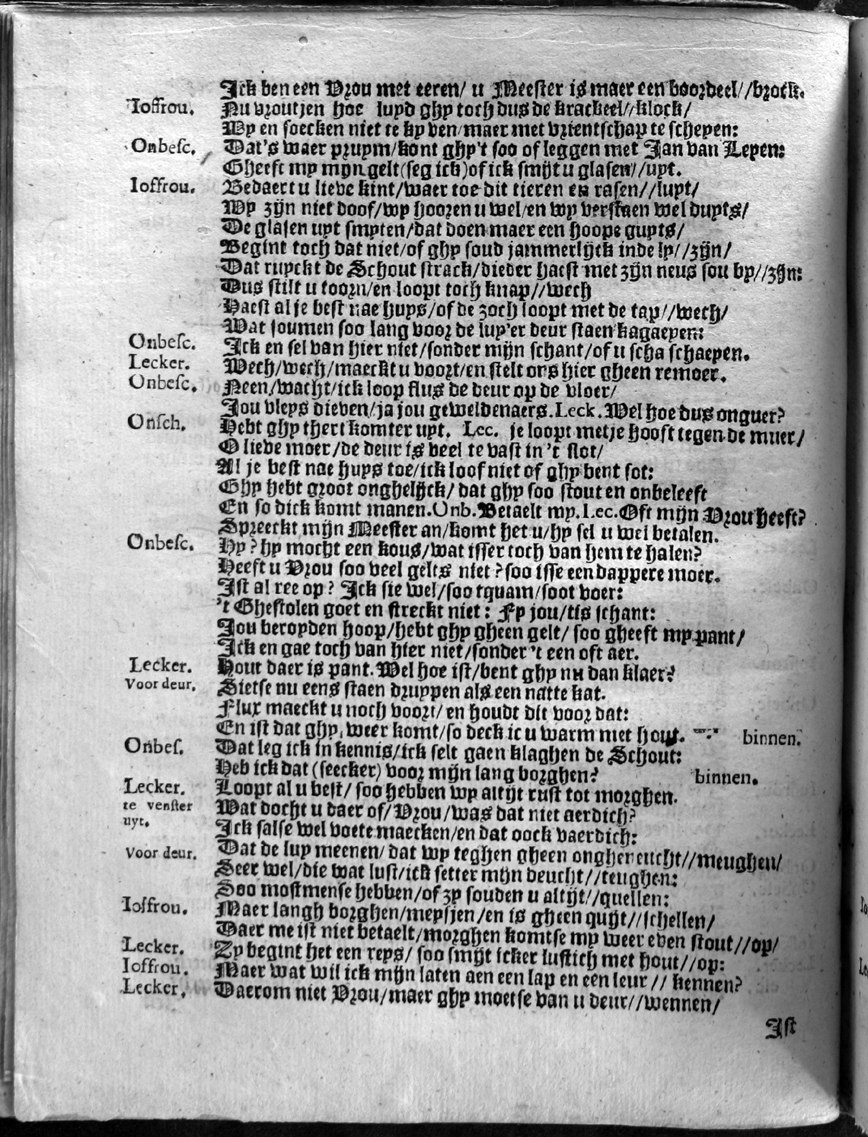 Ick ben een Vrou met eeren/ u Meester is maer een boordeel//brock.
Ioffrou. Nu vroutjen hoe luyd ghy toch dus de krackeel//klock/
Wy en soecken niet te kyven/maer met vrientschap te scheyen:
Onbesc. Dat's waer pruym/kont ghy't soo of leggen met Jan van Leyen:
Gheeft my mijn gelt(seg ick)of ick smijt u glasen//uyt.
Ioffrou. Bedaert u lieve kint/waer toe dit tieren en rasen//luyt/
Wy zijn niet doof/wy hooren u wel/en wy verstaen wel duyts/
De glasen uyt smyten/dat doen maer een hoope guyts/
Begint toch dat niet/of ghy soud jammerlijck inde ly//zijn/
Dat ruyckt de Schout strack/dieder haest met zijn neus sou by//zijn:
Dus stilt u toorn/en loopt toch knap//wech
Haest al je best nae huys/of de zoch loopt met de tap//wech/
Wat soumen soo lang voor de luy'er deur staen kagaeyen:
Onbesc. Ick en sel van hier niet/sonder mijn schant/of u scha schaeyen.
Lecker. Wech/wech/maeckt u voort/en stelt ons hier gheen remoer.
Onbesc. Neen/wacht/ick loop flus de deur op de vloer/
Jou vleys dieven/ja jou geweldenaers. Leck. Wel hoe dus onguer?
Onsch. Hebt ghy thert komter uyt. Lec. je loopt metje hooft tegen de muer/
O lieve moer/de deur is veel te vast in 't slot/
Al je best nae huys toe/ick loof niet of ghy bent sot:
Ghy hebt groot onghelijck/ dat ghy soo stout en onbeleeft
En so dick komt manen. Onb. Betaelt my. Lec. Oft mijn Vrou heeft?
Spreeckt mijn Meester an/komt het u/hy sel u wel betalen.
Onbesc. Hy? hy mocht een kous/wat isser toch van hem te halen?
Heeft u Vrou soo veel gelts niet? soo isse een dappere moer.
Ist al ree op? Ick sie wel/soo tquam/soot voer:
't Ghestolen goet en streckt niet: Fy jou/tis schant:
Jou beroyden hoop/hebt ghy gheen gelt/ soo gheeft my pant/
Ick en gae toch van hier niet/sonder 't een oft aer.
Lecker. Hout daer is pant. Wel hoe ist/bent ghy nu dan klaer?
Voor deur. Sietse nu eens staen druypen als een natte kat.
Flux maeckt u noch voort/ en houdt dit voor dat:
En ist dat ghy weer komt/so deck ic u warm met hout. binnen.
Onbes. Dat leg ick in kennis/ick selt gaen klaghen de Schout:
Heb ick dat (seecker) voor mijn lang borghen? binnen.
Lecker. Loopt al u best/ soo hebben wy altijt rust tot morghen.
te venster Wat docht u daer of/Vrou/was dat niet aerdich?
uyt. Ick salse wel voete maecken/en dat oock vaerdich:
Voor deur. Dat de luy meenen/ dat wy teghen gheen ongheneucht//meughen/
Seer wel/die wat lust/ick setter mijn deucht//teughen:
Soo mostmense hebben/of zy souden u altijt//quellen:
Ioffrou. Maer langh borghen/meysjen/en is gheen quijt//schellen/
Daer me ist niet betaelt/morghen komtse my weer even stout//op/
Lecker. Zy begint het een reys/ soo smijt icker lustich met hout//op:
Ioffrou. Maer wat wil ick mijn laten aen een lap en een leur // kennen?
Lecker. Daerom niet Vrou/maer ghy moetse van u deur//wennen/
Ist